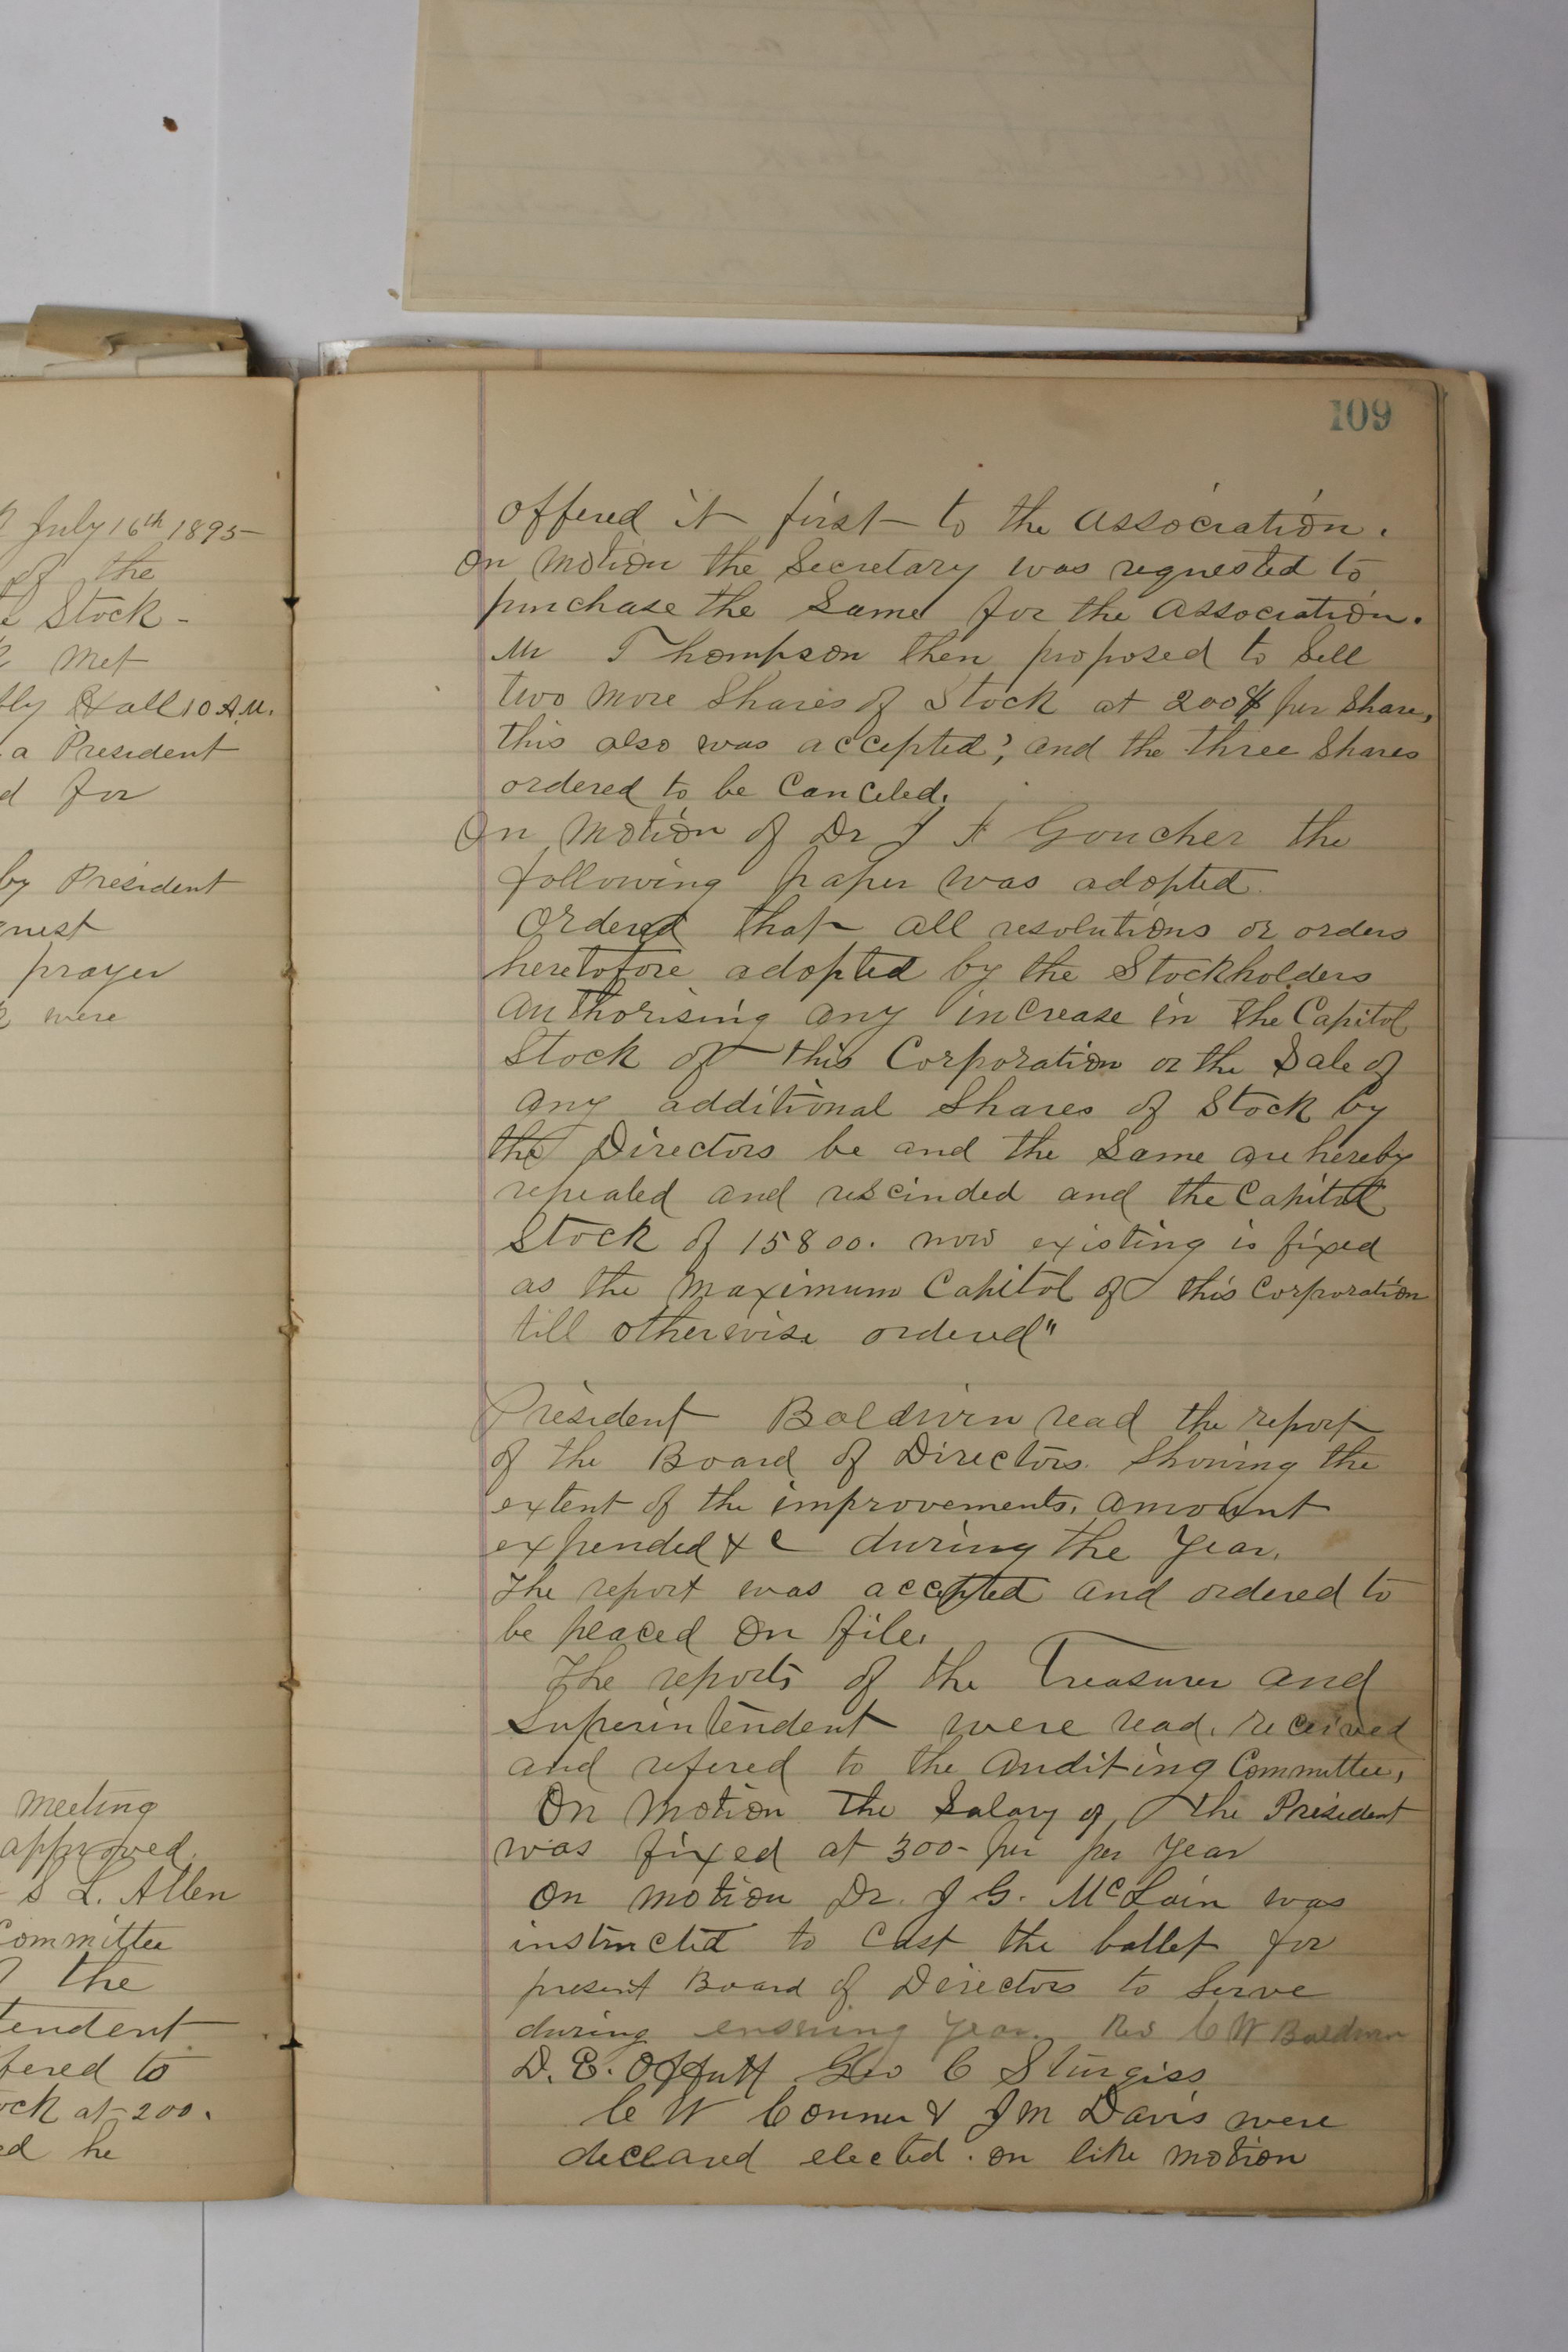 July 16th 1895
of the
Stock -
met
Hall 10 A.M.
a President
for
by President
prayer
were
meeting
approved.
S L. Allen
Committee
the
to
at 200.
he
109
offered it first to the Association.
On motion the Secretary was requested to
purchase the Same for the Association.
Mr Thompson then proposed to Sell
two more Shares of Stock at 200$ per Share,
this also was accepted, and the three Shares
ordered to be Canceled.
On motion of Dr J F Goucher the
following paper was adopted.
Ordered that all resolutions or orders
heretofore adopted by the Stockholders
Authorising any increase in the Capitol
Stock of this Corporation or the Sale of
any additional Shares of Stock by
the Directors be and the Same are hereby
repealed and rescinded and the Capitol
Stock of 15800. now existing is fixed
as the maximum Capitol of this Corporation
till otherwise ordered"
President Baldwin read the report
of the Board of Directors. Showing the
extent of the improvements, amount
expended & c during the Year.
The report was accepted and ordered to
be placed on file.
The reports of the Treasurer and
Superintendent were read, received
and refered to the Auditing Committee,
On motion the Salary of the President
was fixed at 300- per per Year
On motion Dr. J G. McLain was
instructed to Cast the ballot for
present Board of Directors to Serve
during ensuing Year. Rev C W Baldwin
D. E. Offutt Geo C Sturgiss
C W Conner & J M Davis were
declared elected. on like motion